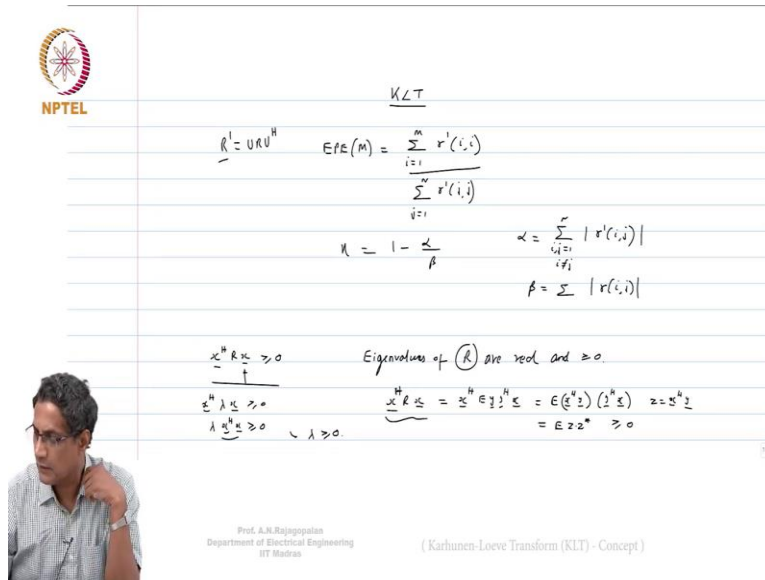 NPTEL
KLT
R' = URU^H EPE(M) = \frac{\sum_{i=1}^{M} r'(i,i)}{\sum_{j=1}^{n} r'(j,j)}
η = 1 - \frac{α}{β} α = \sum_{i,j=1, i≠j}^{n} |r'(i,j)|
β = Σ |r(i,i)|
x^H R x ≥ 0 Eigenvalues of R are real and ≥ 0.
x^H λ x ≥ 0 x^H R x = x^H E y y^H x = E(x^H y)(y^H x) z = x^H y
λ x^H x ≥ 0 λ ≥ 0. = E z z* ≥ 0
Prof. A.N.Rajagopalan
Department of Electrical Engineering
IIT Madras
( Karhunen-Loeve Transform (KLT) - Concept )